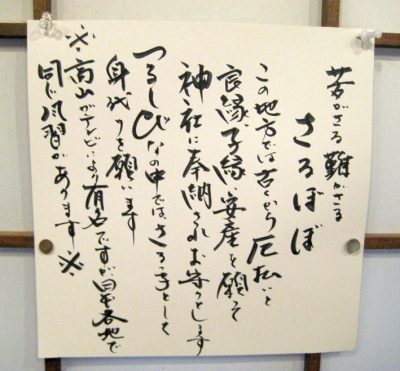 苦がさる難がさる
さるぼぼ
この地方では古くから厄払いと
良縁、子縁、安産を願って
神社に奉納されお守りとします
つるしびなの中では、さるっ子として
身代りを願います
※高山がテレビにより有名ですが、日本各地で
同じ風習があります※